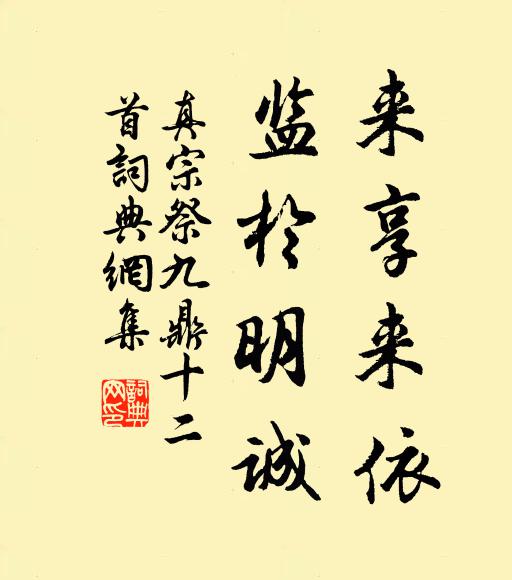 来享来依
监於明诚
真宗祭九鼎十二
首詞典網集
詞典网印